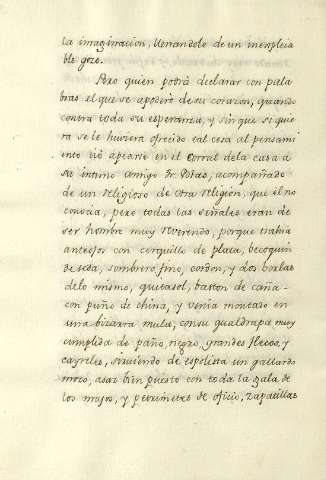 la imaginacion, llenandole de un inexplica
ble gozo.
Pero quien podrá declarar con pala
bras el que se apoderó de su corazon, quando
contra toda su esperanza, y sin que si quie
ra se le huviera ofrecido tal cosa al pensami
ento vió apearse en el corral de la casa a
su intimo amigo Fr. Blas, acompañado
de un religioso de otra religion, que el no
conocia, pero todas las señales eran de
ser hombre muy reverendo, porque trahia
anteojos con cerquillo de plata, becoquin
de seda, sombrero fino, cordon, y dos borlas
de lo mismo, quitasol, baston de caña
con puño de china, y venia montado en
una bizarra mula, con su gualdrapa muy
cumplida de paño, negro, grandes flecos, y
cayreles, sirviendo de espolista un gallardo
mozo, asaz bien puesto con toda la gala de
los majos, y petrimetres de oficio, zapatillas